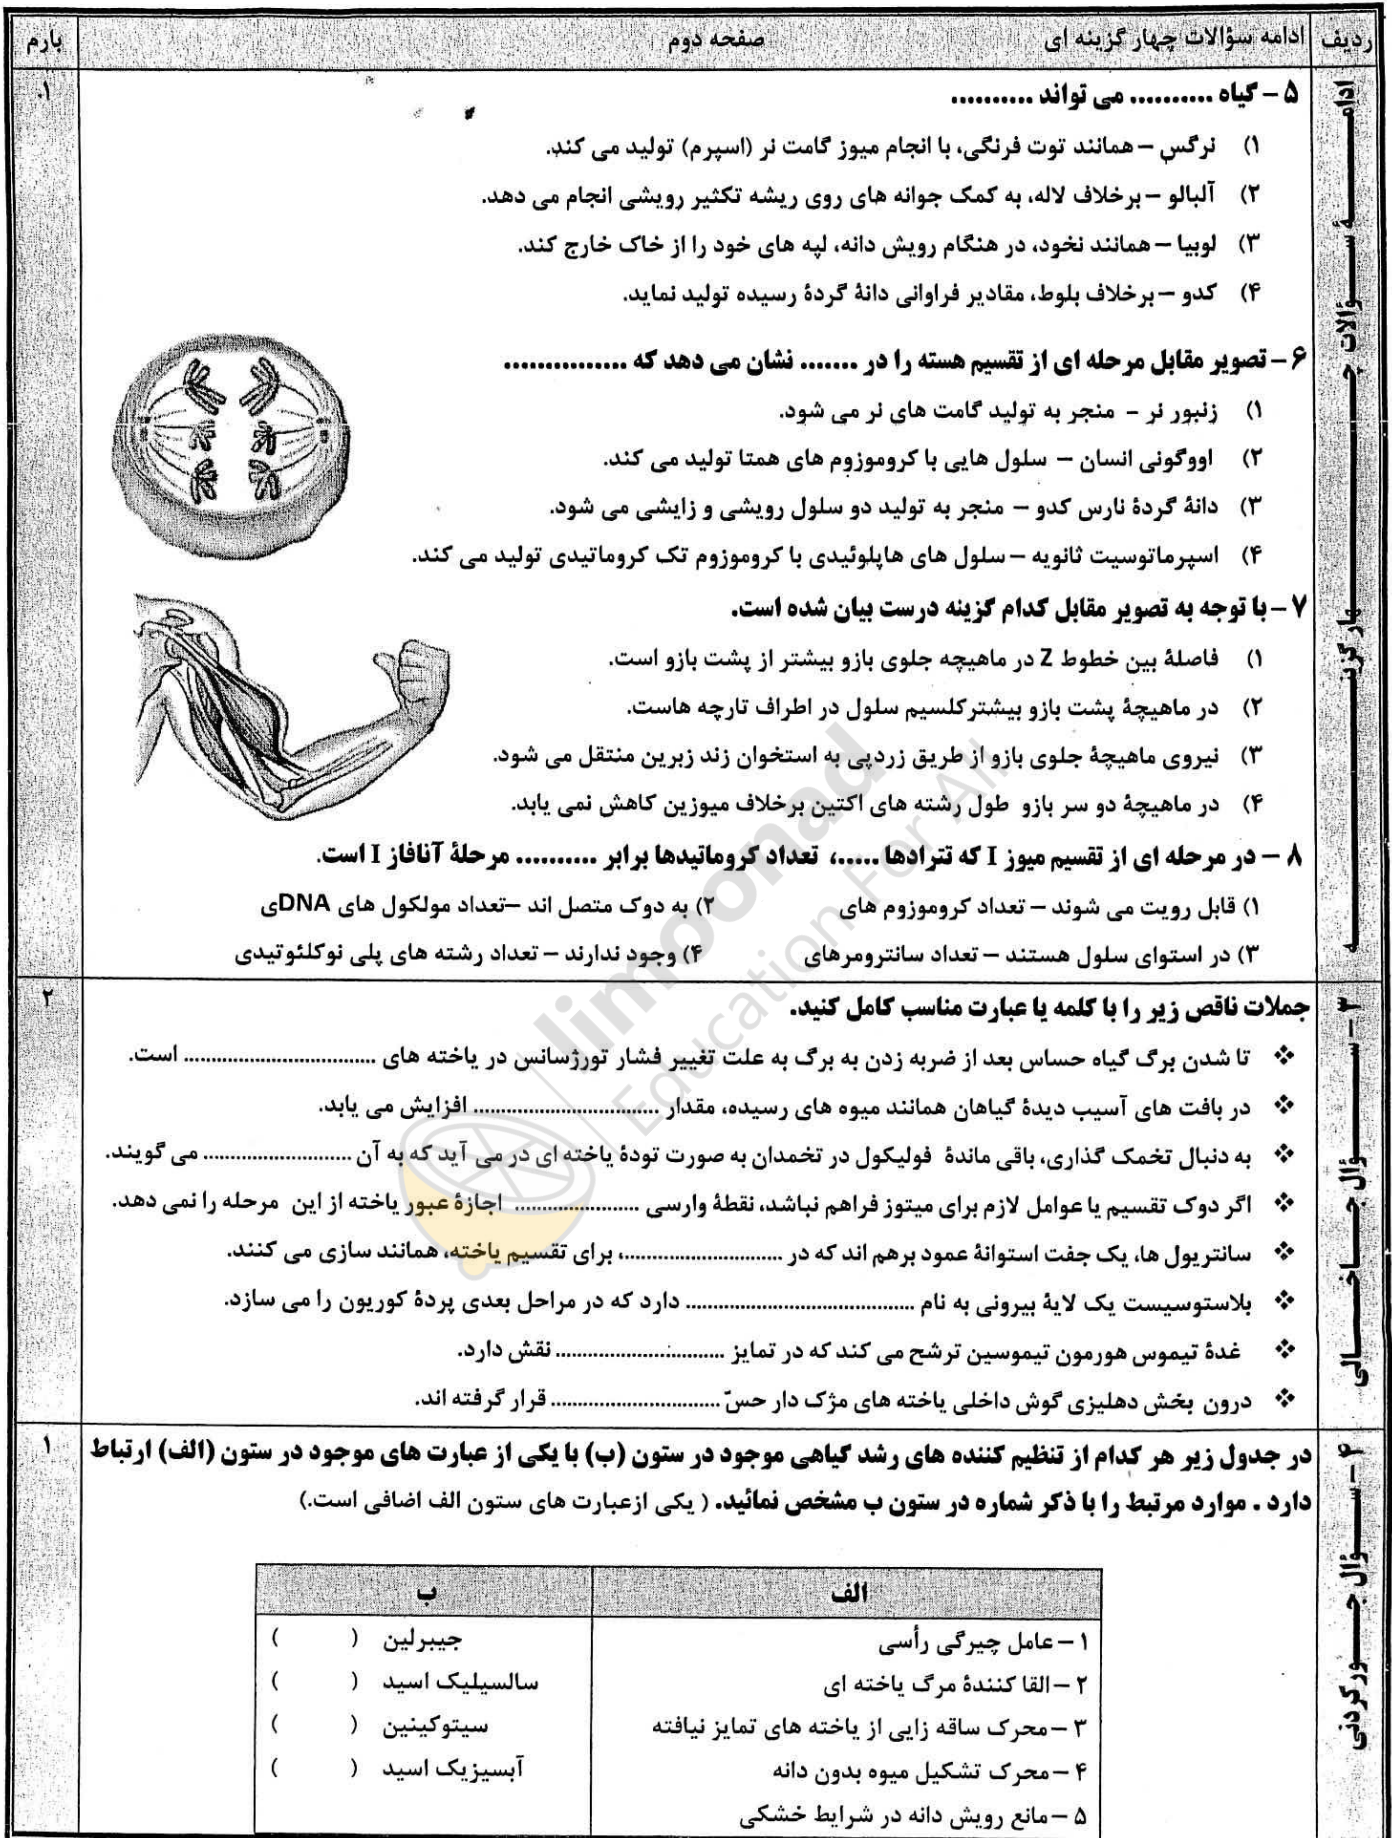 ردیف ادامه سؤالات چهار گزینه ای صفحه دوم بارم
ادامــــــــۀ ســــؤالات چــــــــهار گزینــــــــه
۵ – گیاه .......... می تواند .......... ۱.
۱) نرگس – همانند توت فرنگی، با انجام میوز گامت نر (اسپرم) تولید می کند.
۲) آلبالو – برخلاف لاله، به کمک جوانه های روی ریشه تکثیر رویشی انجام می دهد.
۳) لوبیا – همانند نخود، در هنگام رویش دانه، لپه های خود را از خاک خارج کند.
۴) کدو – برخلاف بلوط، مقادیر فراوانی دانۀ گردۀ رسیده تولید نماید.
۶ – تصویر مقابل مرحله ای از تقسیم هسته را در ....... نشان می دهد که ...............
۱) زنبور نر – منجر به تولید گامت های نر می شود.
۲) اووگونی انسان – سلول هایی با کروموزوم های همتا تولید می کند.
۳) دانۀ گردۀ نارس کدو – منجر به تولید دو سلول رویشی و زایشی می شود.
۴) اسپرماتوسیت ثانویه – سلول های هاپلوئیدی با کروموزوم تک کروماتیدی تولید می کند.
۷ – با توجه به تصویر مقابل کدام گزینه درست بیان شده است.
۱) فاصلۀ بین خطوط Z در ماهیچه جلوی بازو بیشتر از پشت بازو است.
۲) در ماهیچۀ پشت بازو بیشترکلسیم سلول در اطراف تارچه هاست.
۳) نیروی ماهیچۀ جلوی بازو از طریق زردپی به استخوان زند زبرین منتقل می شود.
۴) در ماهیچۀ دو سر بازو طول رشته های اکتین برخلاف میوزین کاهش نمی یابد.
۸ – در مرحله ای از تقسیم میوز I که تترادها .....، تعداد کروماتیدها برابر .......... مرحلۀ آنافاز I است.
۱) قابل رویت می شوند – تعداد کروموزوم های ۲) به دوک متصل اند –تعداد مولکول های DNAی
۳) در استوای سلول هستند – تعداد سانترومرهای ۴) وجود ندارند – تعداد رشته های پلی نوکلئوتیدی
۳ – ســــــؤال جــــاخــــــالی
جملات ناقص زیر را با کلمه یا عبارت مناسب کامل کنید. ۲
❖ تا شدن برگ گیاه حساس بعد از ضربه زدن به برگ به علت تغییر فشار تورژسانس در یاخته های .................................. است.
❖ در بافت های آسیب دیدۀ گیاهان همانند میوه های رسیده، مقدار ................................. افزایش می یابد.
❖ به دنبال تخمک گذاری، باقی ماندۀ فولیکول در تخمدان به صورت تودۀ یاخته ای در می آید که به آن ........................... می گویند.
❖ اگر دوک تقسیم یا عوامل لازم برای میتوز فراهم نباشد، نقطۀ وارسی ...................... اجازۀ عبور یاخته از این مرحله را نمی دهد.
❖ سانتریول ها، یک جفت استوانۀ عمود برهم اند که در .............................، برای تقسیم یاخته، همانند سازی می کنند.
❖ بلاستوسیست یک لایۀ بیرونی به نام ........................................ دارد که در مراحل بعدی پردۀ کوریون را می سازد.
❖ غدۀ تیموس هورمون تیموسین ترشح می کند که در تمایز .............................. نقش دارد.
❖ درون بخش دهلیزی گوش داخلی یاخته های مژک دار حسّ .............................. قرار گرفته اند.
۴ – ســــؤال جــــورکردنی
در جدول زیر هر کدام از تنظیم کننده های رشد گیاهی موجود در ستون (ب) با یکی از عبارت های موجود در ستون (الف) ارتباط ۱
دارد . موارد مرتبط را با ذکر شماره در ستون ب مشخص نمائید. ( یکی ازعبارت های ستون الف اضافی است.)
الف ب
۱ – عامل چیرگی رأسی جیبرلین ( )
۲ – القا کنندۀ مرگ یاخته ای سالسیلیک اسید ( )
۳ – محرک ساقه زایی از یاخته های تمایز نیافته سیتوکینین ( )
۴ – محرک تشکیل میوه بدون دانه آبسیزیک اسید ( )
۵ – مانع رویش دانه در شرایط خشکی
limoonad
Education For All